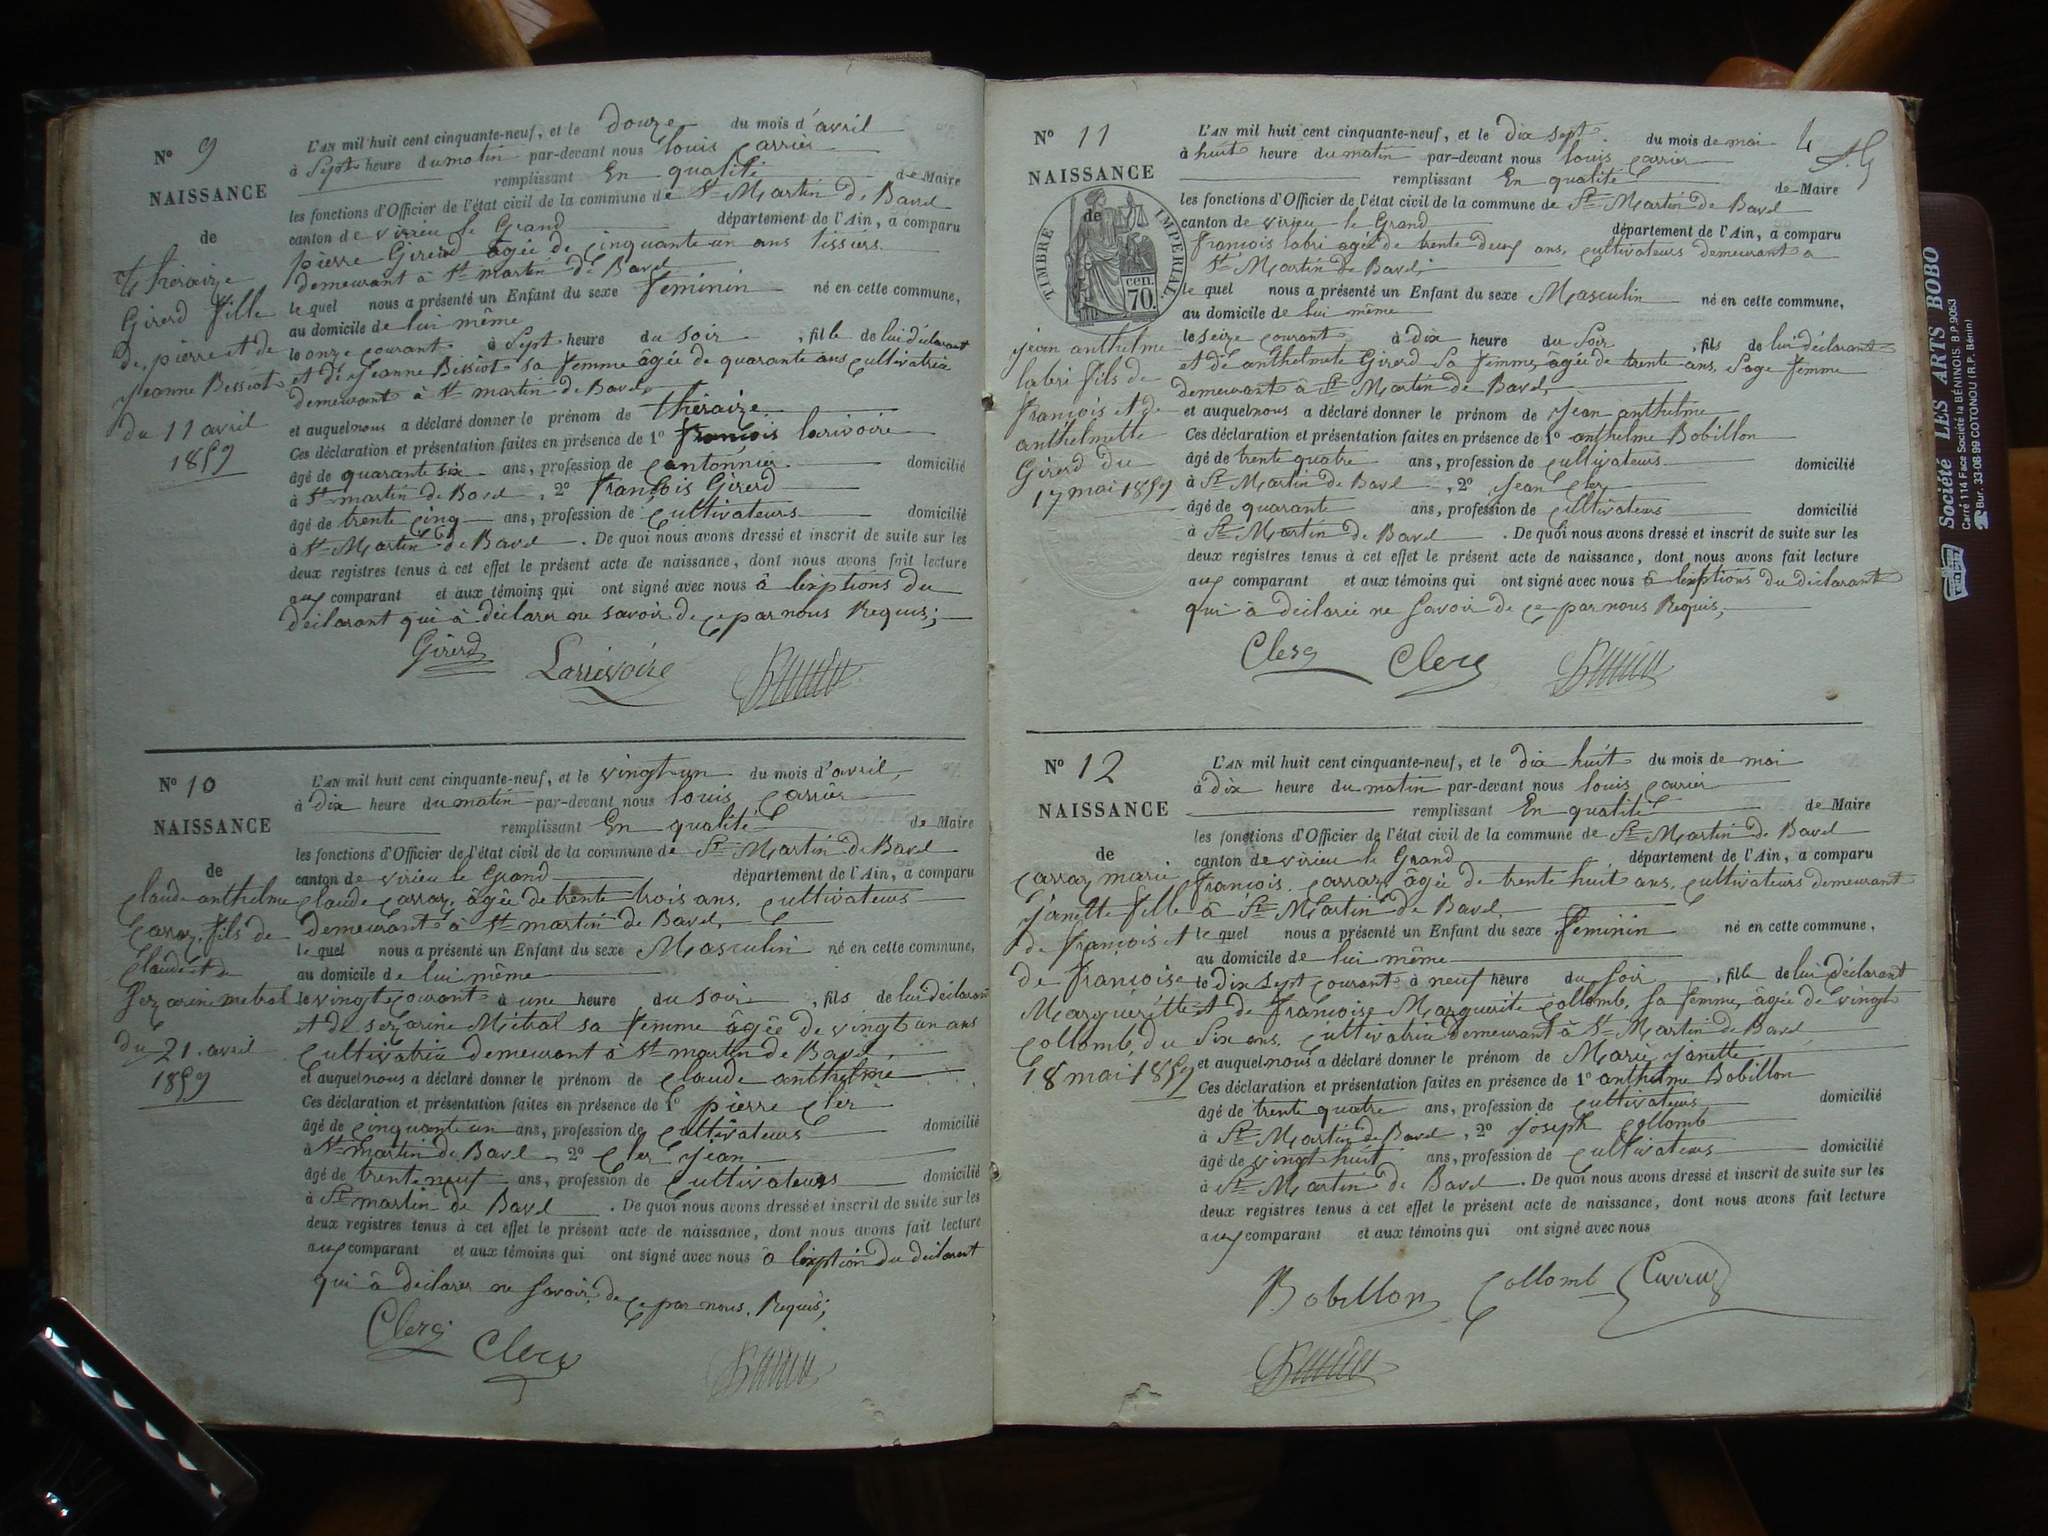 N° 9
NAISSANCE
de
théraize
Girerd fille
de pierre et de
Jeanne Bessiot
du 11 avril
1859
L'AN mil huit cent cinquante-neuf, et le douze du mois d'avril
à Sept heure du matin par-devant nous louis carrier
remplissant En qualité de Maire
les fonctions d'Officier de l'état civil de la commune de St Martin de Bavel
canton de virieu le Grand département de l'Ain, a comparu
pierre Girerd agée de cinquante un ans tissiers
demeurant à St martin de Bavel
le quel nous a présenté un Enfant du sexe féminin né en cette commune,
au domicile de lui même
le onze courant à Sept heure du soir, fille de lui déclarant
et de Jeanne Bessiot sa femme âgée de quarante ans cultivatrice
demeurant à St martin de Bavel,
et auquel nous a déclaré donner le prénom de théraize
Ces déclaration et présentation faites en présence de 1° françois larivoire
âgé de quarante six ans, profession de cantonnier domicilié
à St martin de Bavel, 2° françois Girerd
âgé de trente cinq ans, profession de cultivateurs domicilié
à St Martin de Bavel. De quoi nous avons dressé et inscrit de suite sur les
deux registres tenus à cet effet le présent acte de naissance, dont nous avons fait lecture
aux comparant et aux témoins qui ont signé avec nous à lixptions du
déclarant qui à déclarer ne savoir de ce par nous Requis;
Girerd Larrivoire
N° 10
NAISSANCE
de
claude anthelme
Carraz, fils de
claude et de
Sezarine metral
du 21 avril
1859
L'AN mil huit cent cinquante-neuf, et le vingt un du mois d'avril
à dix heure du matin par-devant nous louis carrier
remplissant En qualité de Maire
les fonctions d'Officier de l'état civil de la commune de St Martin de Bavel
canton de virieu le Grand département de l'Ain, a comparu
claude carraz, âgée de trente trois ans, cultivateurs
demeurant à St martin de Bavel,
le quel nous a présenté un Enfant du sexe Masculin né en cette commune,
au domicile de lui même
le vingt courant à une heure du soir, fils de lui déclarant
et de sezarine Métral sa femme âgée de vingt un ans
cultivatrice demeurant à St martin de Bavel,
et auquel nous a déclaré donner le prénom de claude anthelme
Ces déclaration et présentation faites en présence de 1° pierre cler
âgé de cinquante un ans, profession de cultivateurs domicilié
à St martin de Bavel, 2° cler jean
âgé de trente neuf ans, profession de cultivateurs domicilié
à St martin de Bavel. De quoi nous avons dressé et inscrit de suite sur les
deux registres tenus à cet effet le présent acte de naissance, dont nous avons fait lecture
aux comparant et aux témoins qui ont signé avec nous à lixption du déclarant
qui à déclarer ne savoir de ce par nous Requis;
Clerc Clerc
N° 11
NAISSANCE
de
TIMBRE IMPERIAL.
70 cen.
jean anthelme
labri fils de
françois et de
anthelmette
Girerd du
17 mai 1859
4
L'AN mil huit cent cinquante-neuf, et le dix sept du mois de mai
à huit heure du matin par-devant nous louis carrier
remplissant En qualité de Maire
les fonctions d'Officier de l'état civil de la commune de St Martin de Bavel
canton de virieu le Grand département de l'Ain, a comparu
françois labri agée de trente deux ans, cultivateurs demeurant a
St Martin de Bavel,
le quel nous a présenté un Enfant du sexe Masculin né en cette commune,
au domicile de lui même
le seize courant à dix heure du Soir, fils de lui déclarant
et de anthelmete Girerd Sa femme, âgée de trente ans, Sage femme
demeurant à St Martin de Bavel,
et auquel nous a déclaré donner le prénom de jean anthelme
Ces déclaration et présentation faites en présence de 1° anthelme Bobillon
âgé de trente quatre ans, profession de cultivateurs domicilié
à St Martin de Bavel, 2° jean cler
âgé de quarante ans, profession de cultivateurs domicilié
à St Martin de Bavel. De quoi nous avons dressé et inscrit de suite sur les
deux registres tenus à cet effet le présent acte de naissance, dont nous avons fait lecture
aux comparant et aux témoins qui ont signé avec nous à lixptions du déclarant
qui à déclarée ne Savoir de ce par nous Requis;
Clerc Clerc
N° 12
NAISSANCE
de
carraz marie
janette fille
de françois et
de françoise
Marguérétte
collomb du
18 mai 1859
L'AN mil huit cent cinquante-neuf, et le dix huit du mois de mai
à dix heure du matin par-devant nous louis carrier
remplissant En qualité de Maire
les fonctions d'Officier de l'état civil de la commune de St Martin de Bavel
canton de virieu le Grand département de l'Ain, a comparu
françois carraz, âgée de trente huit ans, cultivateurs demeurant
à St Martin de Bavel,
le quel nous a présenté un Enfant du sexe féminin né en cette commune,
au domicile de lui même
le dix sept courant à neuf heure du soir, fille de lui déclarant
et de françoise Marguerite collomb, sa femme, âgée de vingt
Six ans, cultivatrice demeurant à St Martin de Bavel
et auquel nous a déclaré donner le prénom de Marie janette
Ces déclaration et présentation faites en présence de 1° anthelme Bobillon
âgé de trente quatre ans, profession de cultivateurs domicilié
à St Martin de Bavel, 2° joseph collomb
âgé de vingt huit ans, profession de cultivateurs domicilié
à St Martin de Bavel. De quoi nous avons dressé et inscrit de suite sur les
deux registres tenus à cet effet le présent acte de naissance, dont nous avons fait lecture
aux comparant et aux témoins qui ont signé avec nous
Bobillon collomb Carraz
Société LES ARTS BOBO
Carré 114 Face Société la BÉNINOIS. B.P. 9063
Bur. 33-08-99 COTONOU (R.P. Bénin)